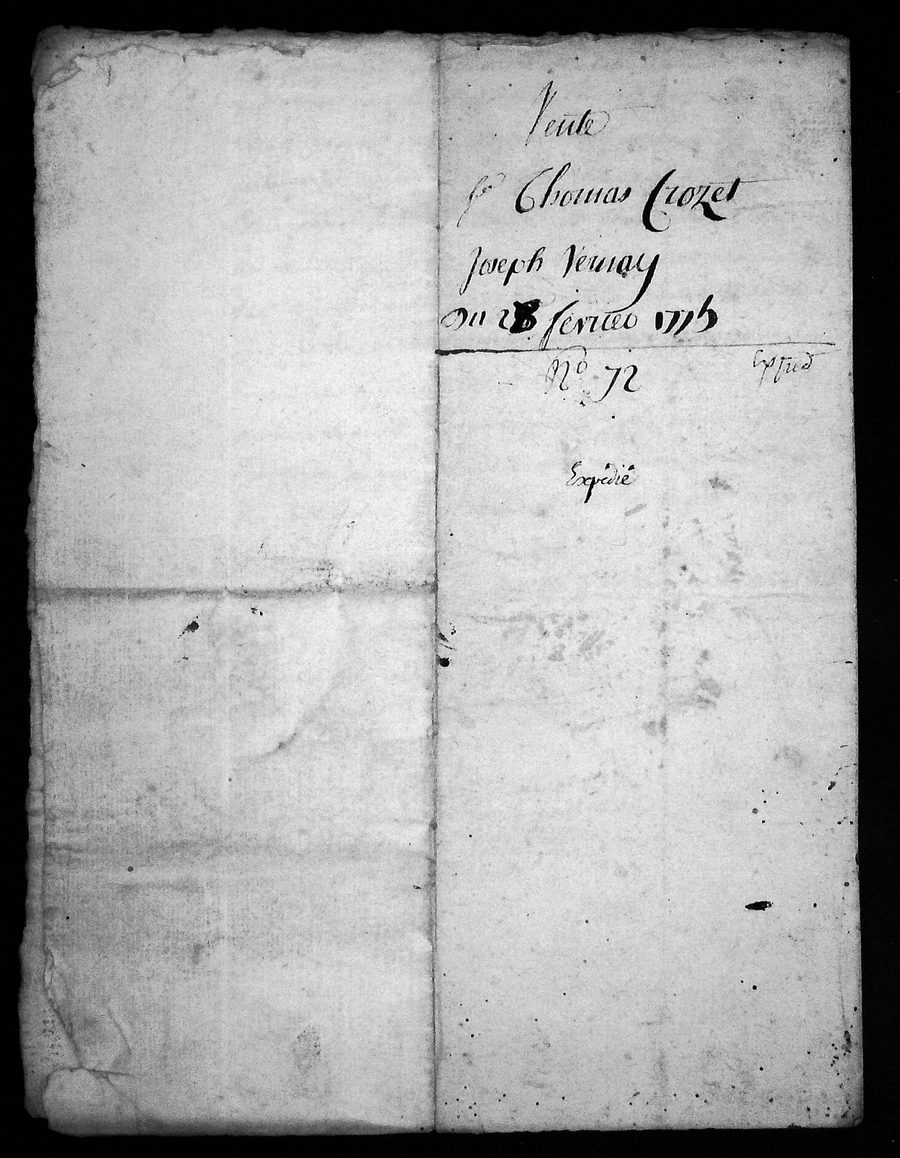 Vente
Thomas Crozet
Joseph Vernay
Du 28 février 1775
N° 72
Expédié